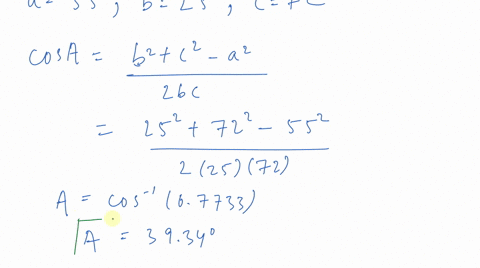 a = 55 , b = 25 , c = 72
cosA = b² + c² - a²
2bc
= 25² + 72² - 55²
2 (25) (72)
A = cos⁻¹ (0.7733)
A = 39.34°